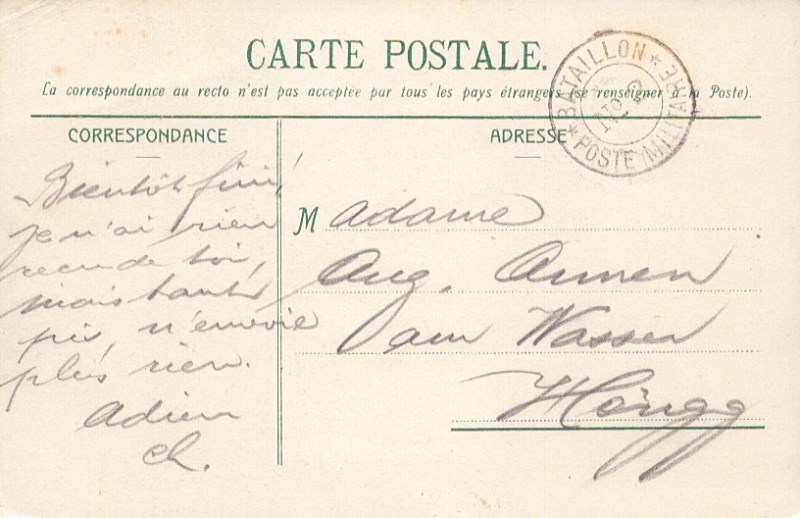 CARTE POSTALE.
La correspondance au recto n'est pas acceptée par tous les pays étrangers (se renseigner à la Poste).
★ BATAILLON ★ POSTE MILITAIRE
No 6
CORRESPONDANCE
Bientôt fini,
je n'ai rien
reçu de toi,
mais tant
pis, n'envoie
plus rien.
Adieu
Ch.
ADRESSE
Madame
Aug. Annen
am Wasser
Höngg